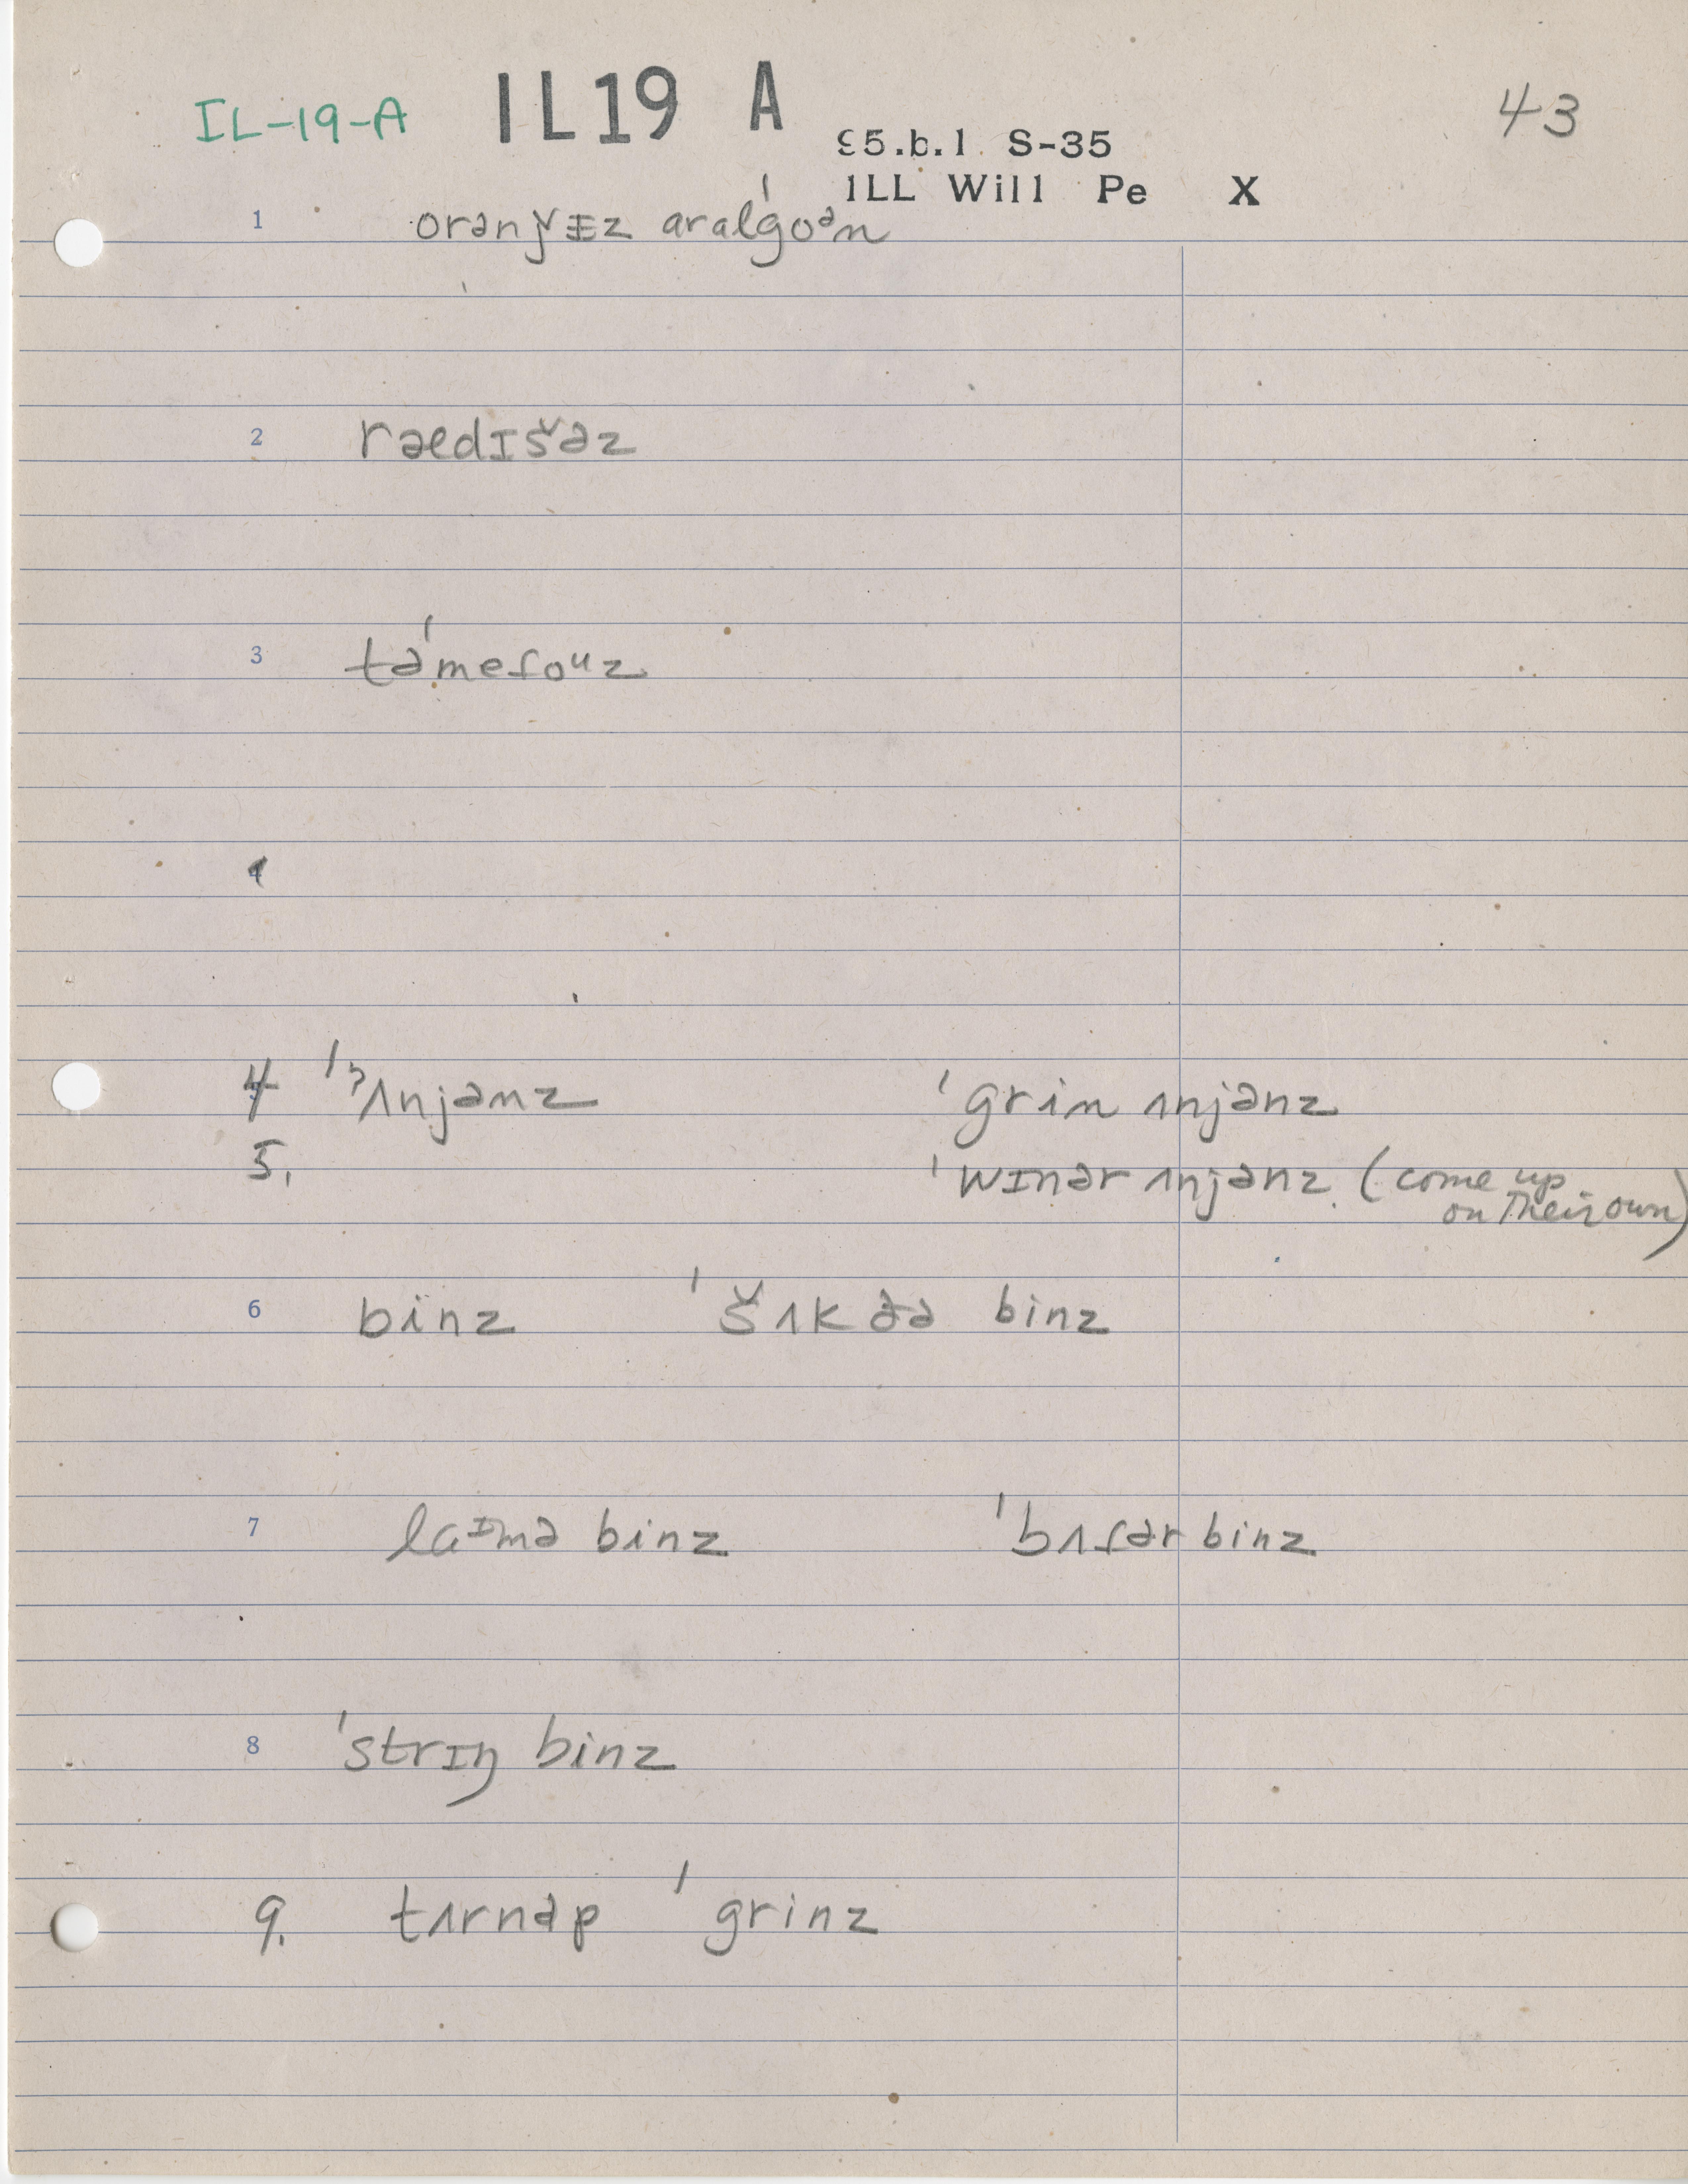 IL-19-A IL19 A 43
95.b.1 S-35
ILL Will Pe X
1 orənǰɪz ar alˈgoᵊn
2 rædɪšəz
3 təˈmeɾoᵘz
4 ˈʌnjənz ˈgrin ʌnjənz
5. ˈwɪnər ʌnjənz (come up
on their own)
6 binz ˈšʌk əd binz
7 laᶦmə binz ˈbʌɾər binz
8 ˈstrɪŋ binz
9. tʌrnəp ˈgrinz